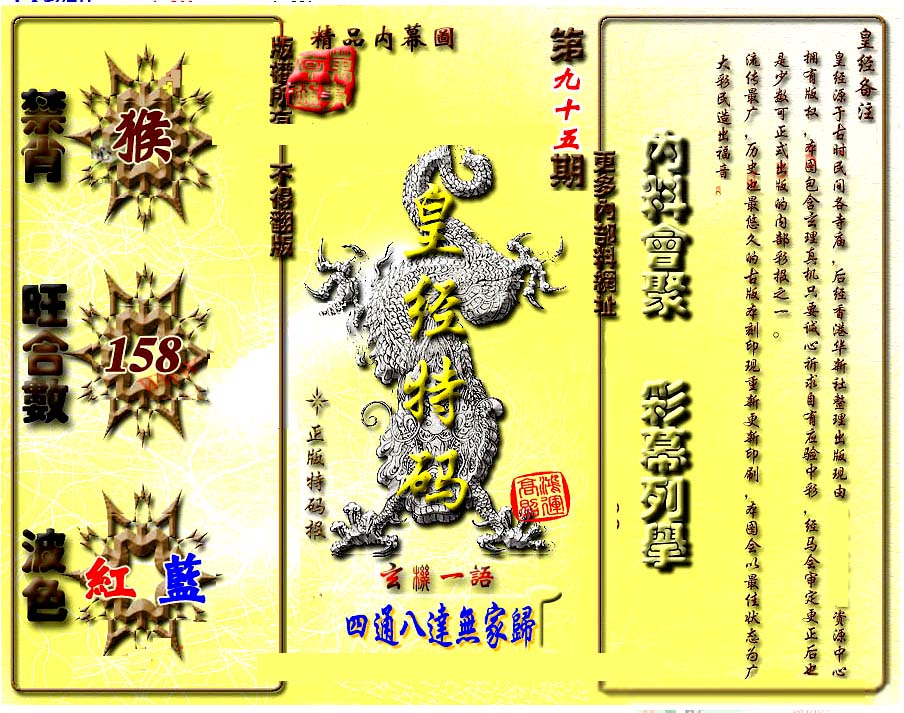 精品内幕圖
版權所有
不得翻版
第九十五期
更多內部料網址
禁肖
猴
旺合數
158
波色
紅 藍
皇经特码
正版特码报
鸿運高照
玄機一語
四通八達無家歸
内料會聚
彩幕列舉
皇经备注
皇经源于古时民间各寺庙,后经香港华新社整理出版现由 资源中心
拥有版权,本图包含玄理真机只要诚心祈求自有应验中彩,经马会审定更正后也
是少数可正式出版的内部彩报之一。
流传最广,历史也最悠久的古版本刻印现重新更新印刷,本图会以最佳状态为广
大彩民造出福音